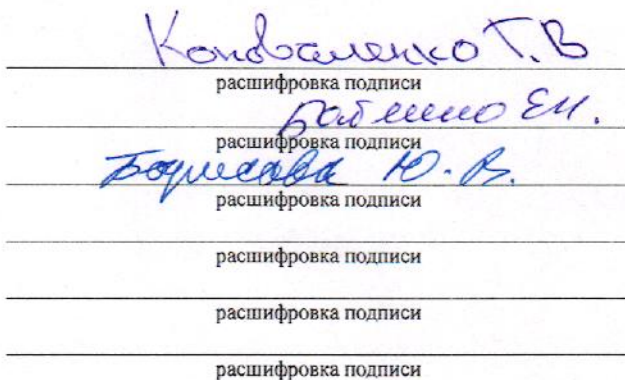 Коноваленко Т. В
расшифровка подписи
Е.Н.
расшифровка подписи
Борисова Ю. В.
расшифровка подписи
расшифровка подписи
расшифровка подписи
расшифровка подписи